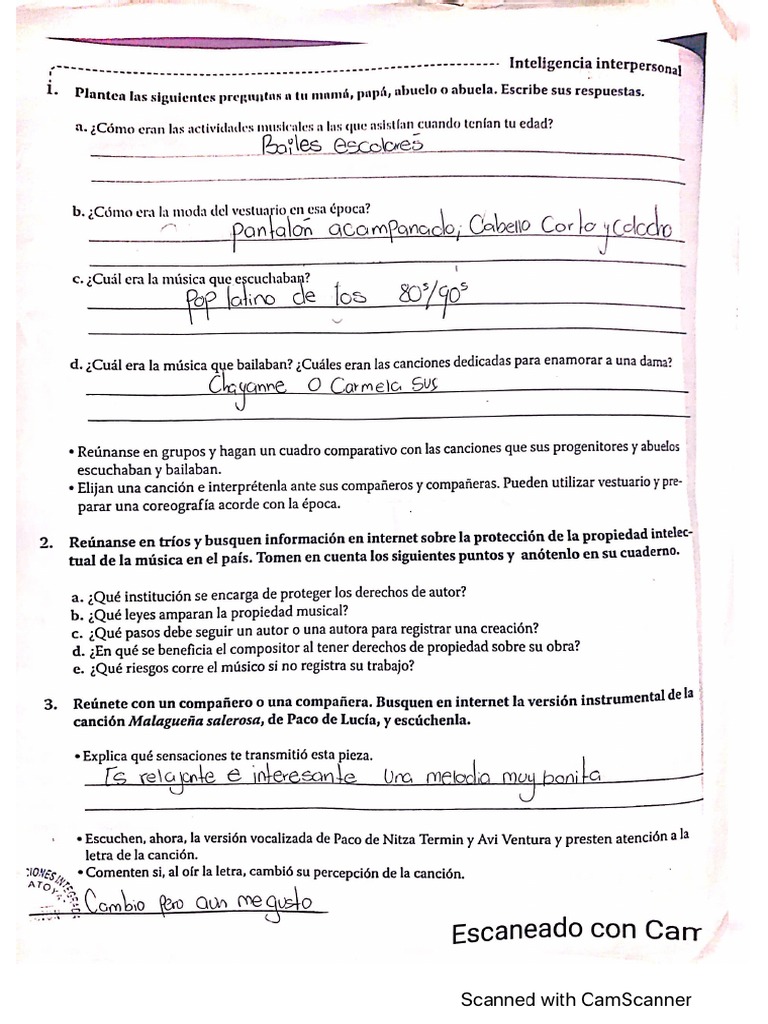 Inteligencia interpersonal
1. Plantea las siguientes preguntas a tu mamá, papá, abuelo o abuela. Escribe sus respuestas.
a. ¿Cómo eran las actividades musicales a las que asistían cuando tenían tu edad?
Bailes escolares
b. ¿Cómo era la moda del vestuario en esa época?
Pantalón acampanado, Cabello Corto y
c. ¿Cuál era la música que escuchaban?
Pop latino de los 80s/90s
d. ¿Cuál era la música que bailaban? ¿Cuáles eran las canciones dedicadas para enamorar a una dama?
Chayanne O Carmela Sus
• Reúnanse en grupos y hagan un cuadro comparativo con las canciones que sus progenitores y abuelos
escuchaban y bailaban.
• Elijan una canción e interprétenla ante sus compañeros y compañeras. Pueden utilizar vestuario y pre-
parar una coreografía acorde con la época.
2. Reúnanse en tríos y busquen información en internet sobre la protección de la propiedad intelec-
tual de la música en el país. Tomen en cuenta los siguientes puntos y anótenlo en su cuaderno.
a. ¿Qué institución se encarga de proteger los derechos de autor?
b. ¿Qué leyes amparan la propiedad musical?
c. ¿Qué pasos debe seguir un autor o una autora para registrar una creación?
d. ¿En qué se beneficia el compositor al tener derechos de propiedad sobre su obra?
e. ¿Qué riesgos corre el músico si no registra su trabajo?
3. Reúnete con un compañero o una compañera. Busquen en internet la versión instrumental de la
canción Malagueña salerosa, de Paco de Lucía, y escúchenla.
• Explica qué sensaciones te transmitió esta pieza.
Es relajante e interesante Una melodia muy bonita
• Escuchen, ahora, la versión vocalizada de Paco de Nitza Termin y Avi Ventura y presten atención a la
letra de la canción.
• Comenten si, al oír la letra, cambió su percepción de la canción.
Cambio pero aun me gusto
Escaneado con Cam
Scanned with CamScanner